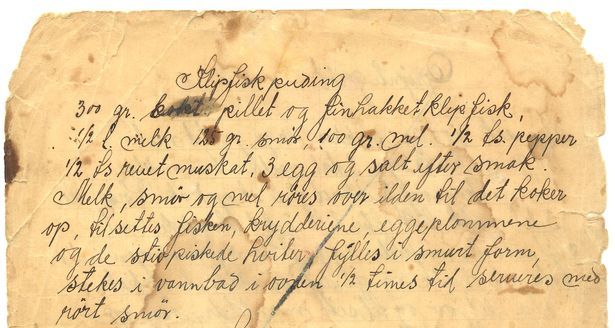 Klipfiskpuding
300 gr. kokt pillet og finhakket klipfisk,
1/2 l. melk 125 gr. smör, 100 gr. mel. 1/2 ts. pepper
1/2 ts revet muskat, 3 egg og salt efter smak.
Melk, smör og mel röres over ilden til det koker
op, tilsettes fisken, krydderiene, eggeplommene
og de stivpiskede hviter fylles i smurt form,
stekes i vannbad i ovnen 1/2 times tid serveres med
rört smör.